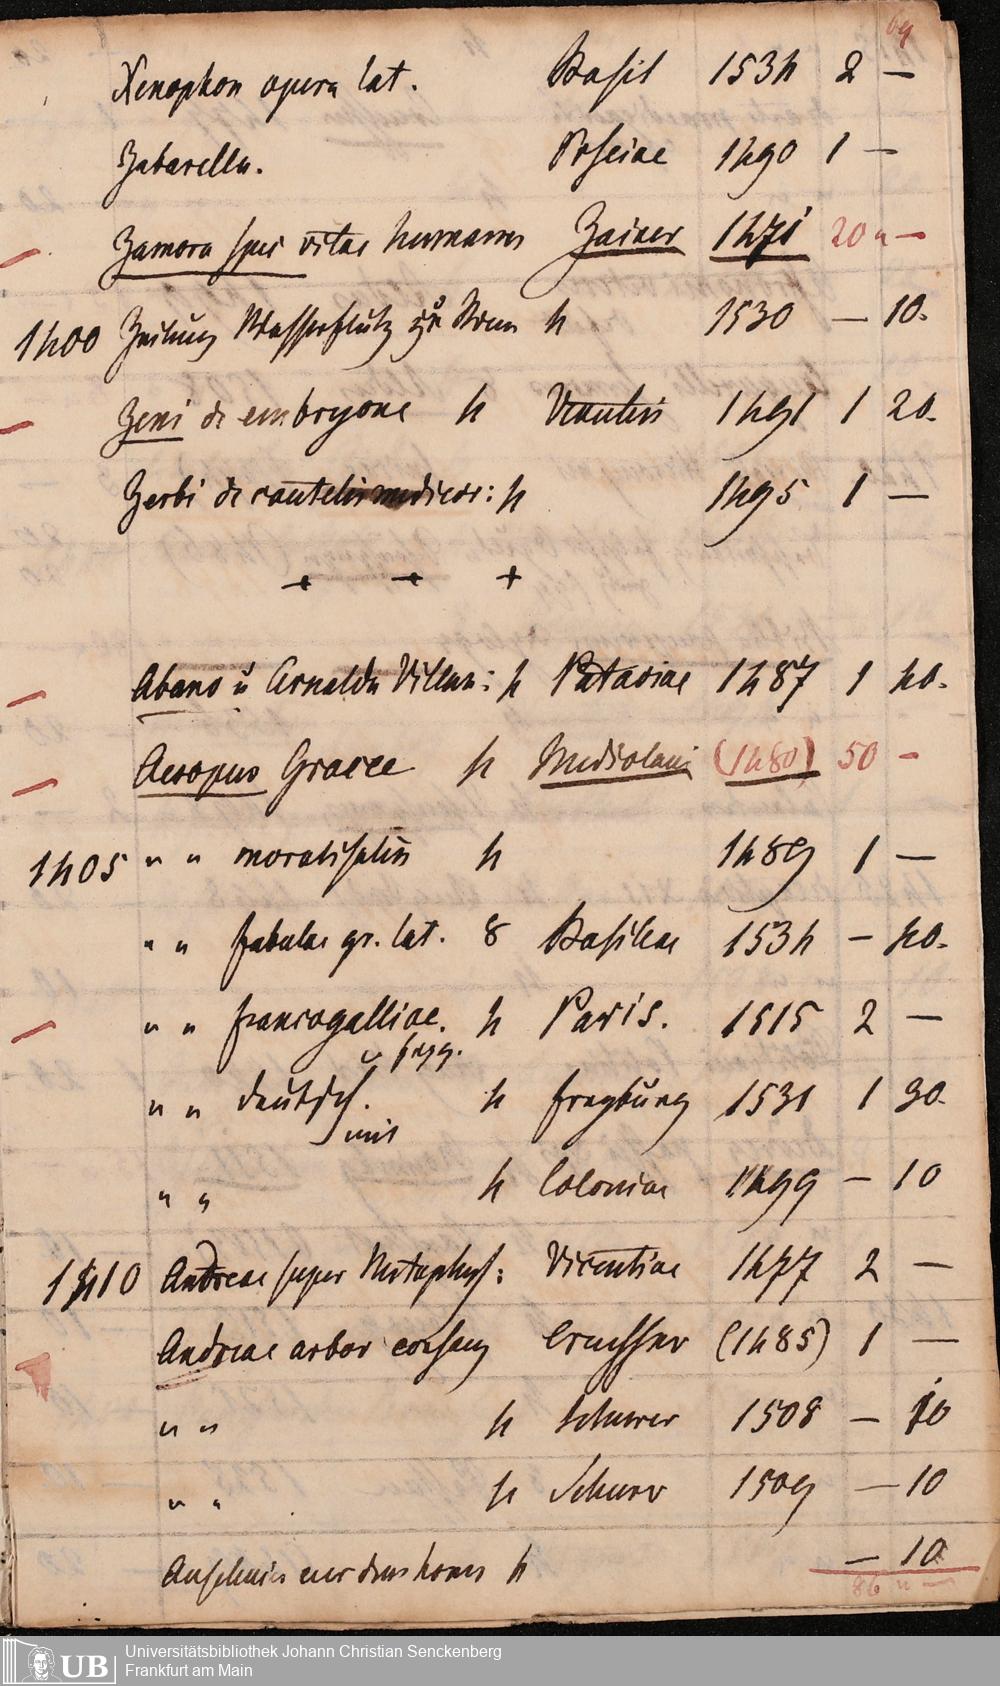 69
Xenophon opera lat. Basil 1534 2 —
Zabarella. 1490 1 —
Zamora spec vitae humanae Zainer 1471 20 " —
1400 Zeitung Wasserflutz zu Rom 4 1530 — 10.
Zeni de embryone 4 Venetiis 1491 1 20.
Zerbi de cautelis medicor: 4 1495 1 —
+ + +
Abano u Arnaldu Villan: 4 Pataviae 1487 1 40.
Aesopus Graece 4 Mediolani (1480) 50 —
1405 " " moralisatus 4 1489 1 —
" " fabulae gr. lat. 8 Basileae 1534 — 40.
" " francogallice. 4 Paris. 1515 2 —
" " deutsch. 4 Freyburg 1531 1 30.
mit
" " 4 Coloniae 1499 — 10
1410 Andreae super Metaphys: Vicentiae 1477 2 —
Andreae arbor consang Creussner (1485) 1 —
" " 4 Schurer 1508 — 10
" " 4 Schurer 1509 — 10
cur deus homo 4 — 10
86 " —
UB Universitätsbibliothek Johann Christian Senckenberg
Frankfurt am Main